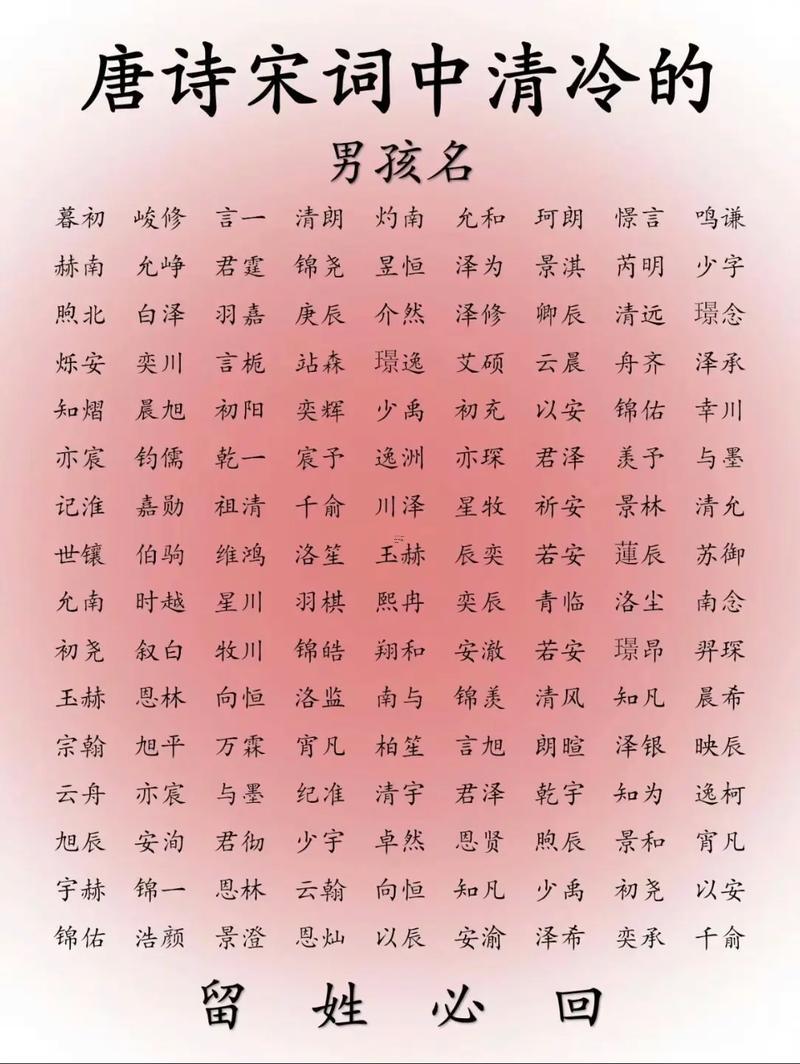 唐诗宋词中清冷的
男孩名
暮初 峻修 言一 清朗 灼南 允和 珂朗 憬言 鸣谦
赫南 允峥 君霆 锦尧 昱恒 泽为 景淇 芮明 少字
煦北 白泽 羽嘉 庚辰 介然 泽修 卿辰 清远 璟念
烁安 奕川 言栀 站森 璟逸 艾硕 云晨 舟齐 泽承
知熠 晨旭 初阳 奕辉 少禹 初充 以安 锦佑 幸川
亦宸 钧儒 乾一 宸予 逸洲 亦琛 君泽 羡予 与墨
记淮 嘉勋 祖清 千俞 川泽 星牧 祈安 景林 清允
世镶 伯驹 维鸿 洛笙 玉赫 辰奕 若安 蓮辰 苏御
允南 时越 星川 羽棋 熙冉 奕辰 青临 洛尘 南念
初尧 叙白 牧川 锦皓 翔和 安澈 若安 璟昂 羿琛
玉赫 恩林 向恒 洛监 南与 锦羡 清风 知凡 晨希
宗翰 旭平 万霖 宵凡 柏笙 言旭 朗暄 泽银 映辰
云舟 亦宸 与墨 纪准 清宇 君泽 乾宇 知为 逸柯
旭辰 安洵 君彻 少宇 卓然 恩贤 煦辰 景和 宵凡
宇赫 锦一 恩林 云翰 向恒 知凡 少禹 初尧 以安
锦佑 浩颜 景澄 恩灿 以辰 安渝 泽希 奕承 千俞
留姓必回